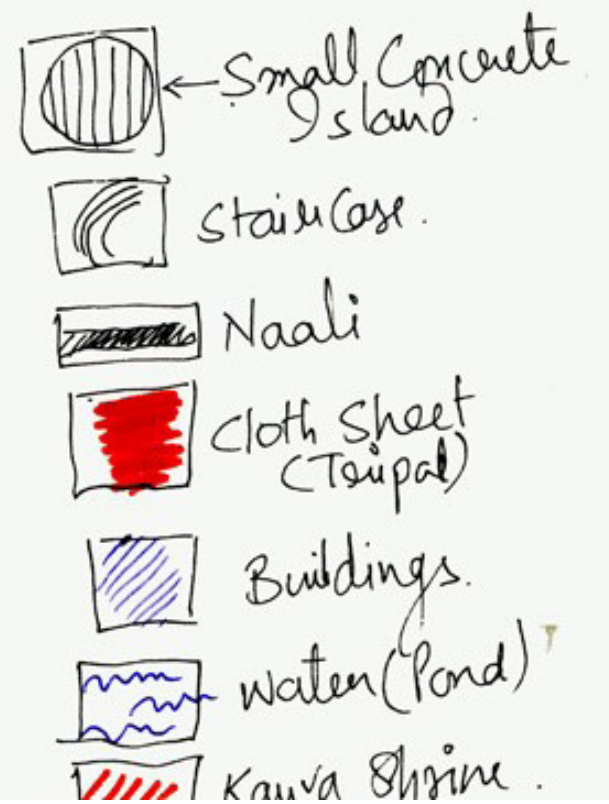 Small Concrete
Island.
StairCase.
Naali
Cloth Sheet
(Tirpal)
Buildings.
Water (Pond)
Shrine.